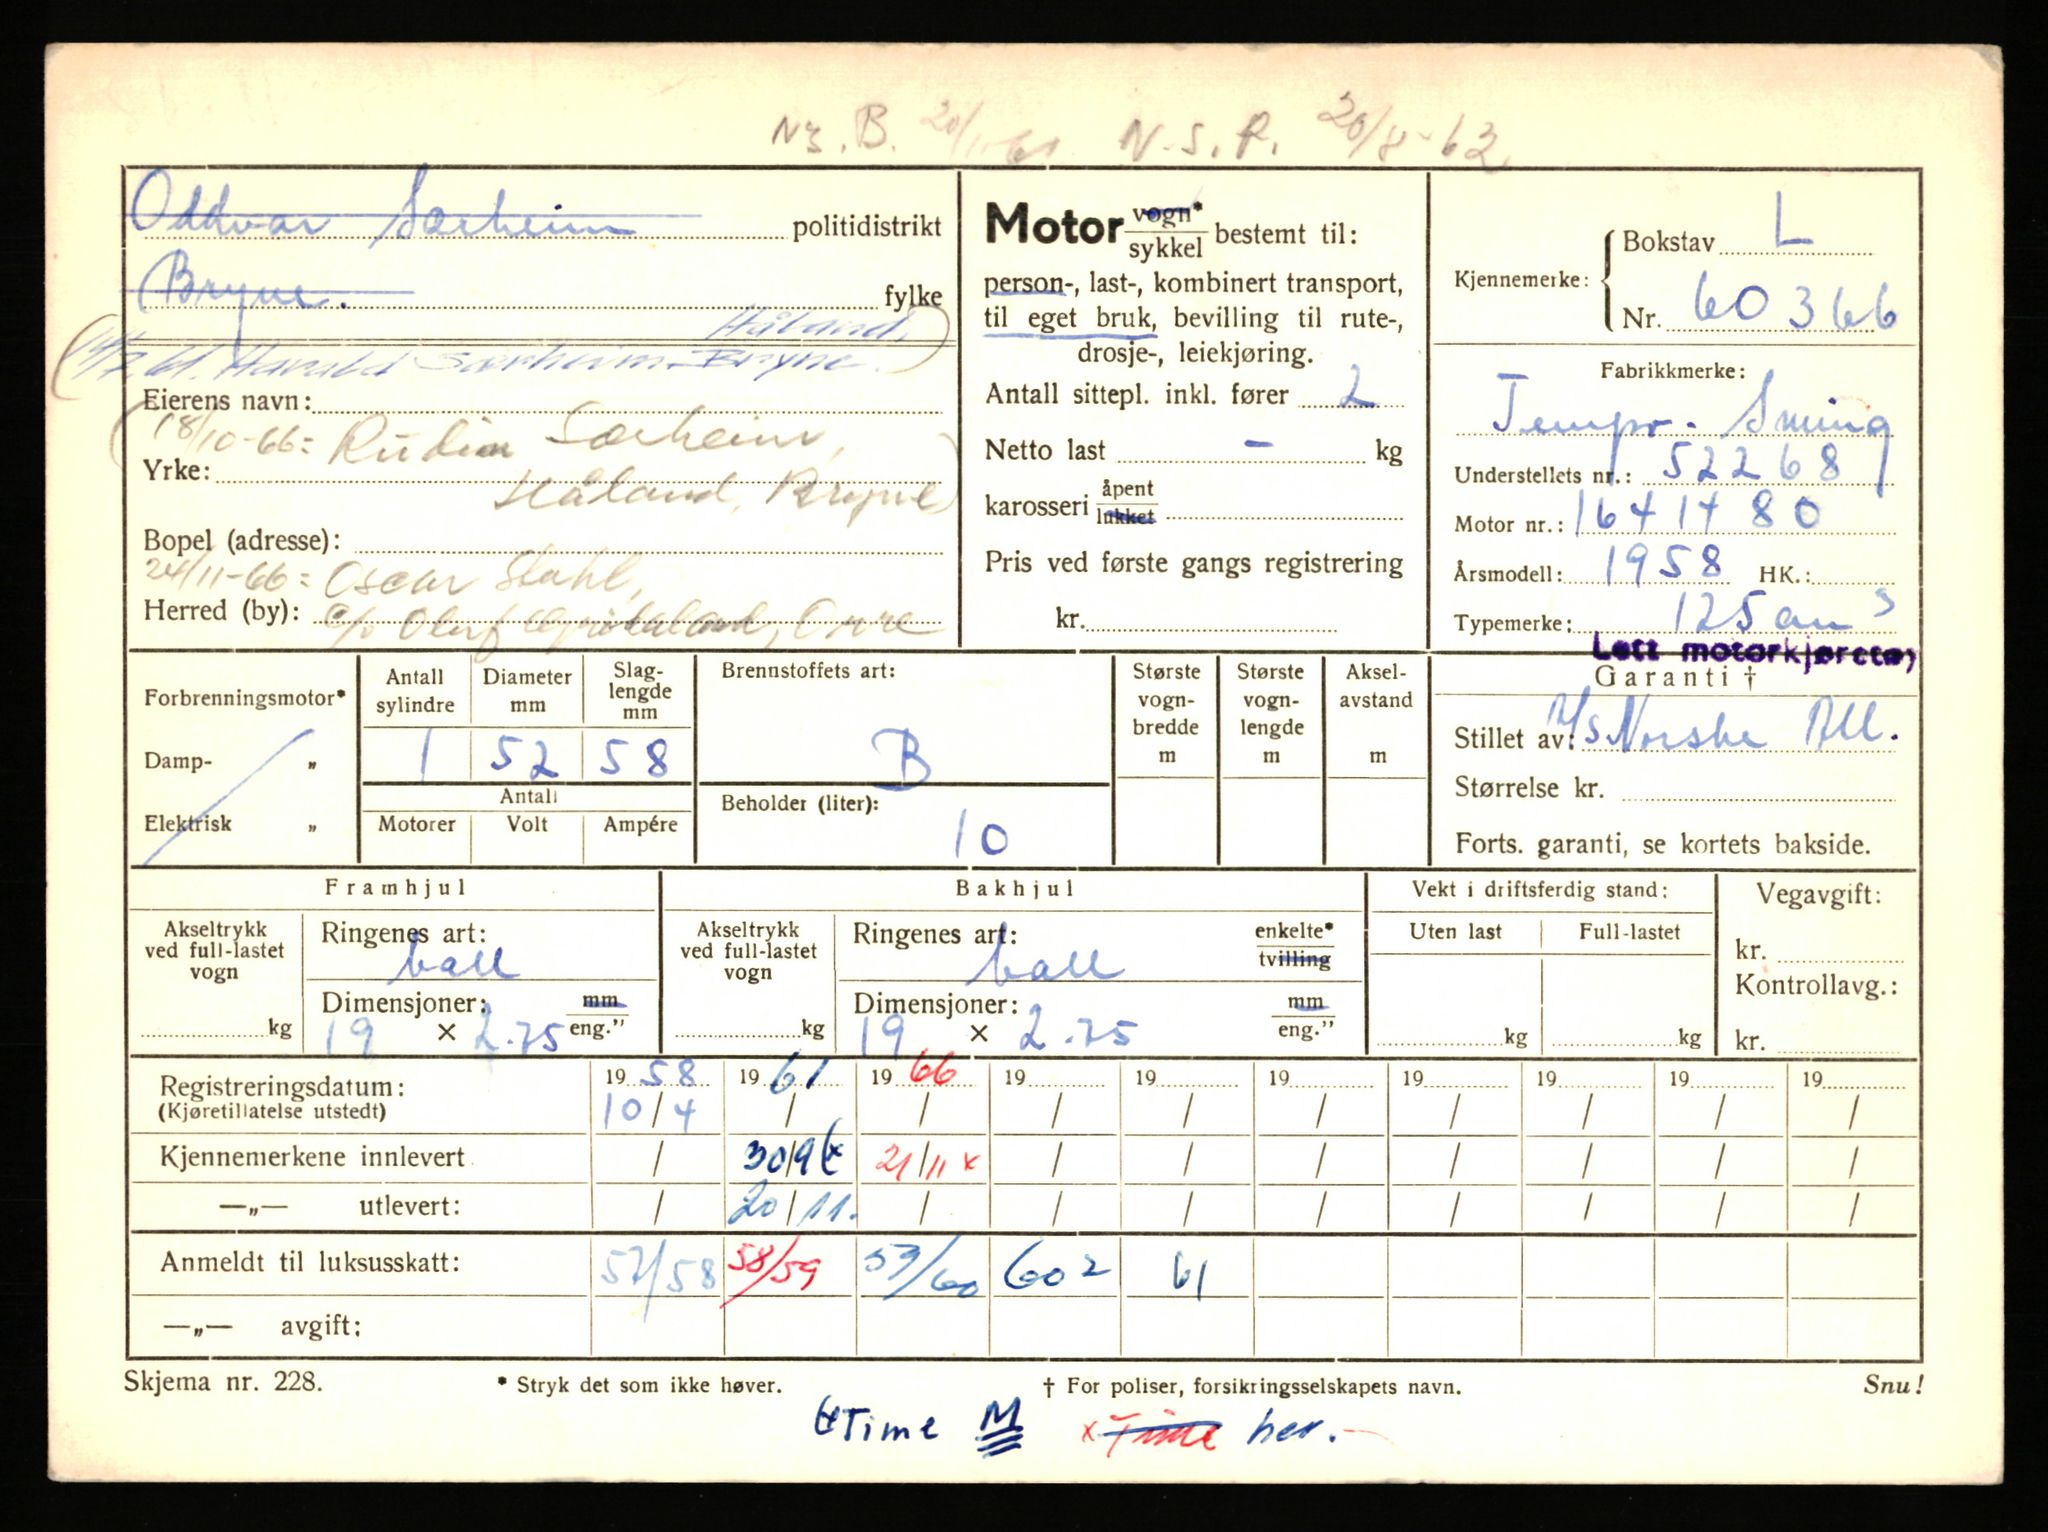 N.S.B. 20/11-61 N.S.R. 20/8-62.
Oddvar Særheim politidistrikt
Bryne. fylke
Håland,
61. Harald Særheim - Bryne.
Eierens navn:
18/10-66: Rudin Særheim,
Yrke:
Håland, Bryne
Bopel (adresse):
24/11-66: Oscar Stahl,
Herred (by): c/o Oluf Grødaland, Orre
Motor vogn*
sykkel bestemt til:
person-, last-, kombinert transport,
til eget bruk, bevilling til rute-,
drosje-, leiekjøring.
Antall sittepl. inkl. fører 2
Netto last - kg
karosseri åpent
lukket
Pris ved første gangs registrering
kr.
Kjennemerke: Bokstav L
Nr. 60366
Fabrikkmerke:
Tempo - Swing
Understellets nr.: 52268
Motor nr.: 1641480
Årsmodell: 1958 HK.:
Typemerke: 125 cm3
Lett motorkjøretøy
Garanti †
Stillet av: A/S Norske All.
Størrelse kr.
Forts. garanti, se kortets bakside.
Forbrenningsmotor*
Damp- „
Elektrisk „
Antall sylindre Diameter mm Slag-lengde mm
1 52 58
Antall
Motorer Volt Ampére
Brennstoffets art:
B
Beholder (liter):
10
Største vogn-bredde m Største vogn-lengde m Aksel-avstand m
Framhjul
Akseltrykk ved full-lastet vogn
kg
Ringenes art:
ball
Dimensjoner: mm
19 × 2.75 eng.”
Bakhjul
Akseltrykk ved full-lastet vogn
kg
Ringenes art: enkelte*
ball tvilling
Dimensjoner: mm
19 × 2.75 eng.”
Vekt i driftsferdig stand:
Uten last Full-lastet
kg kg
Vegavgift:
kr.
Kontrollavg.:
kr.
Registreringsdatum: 1958 1961 1966 19 19 19 19 19 19 19
(Kjøretillatelse utstedt) 10/4 / / / / / / / / /
Kjennemerkene innlevert / 30/9 21/11 x / / / / / / /
—„— utlevert: / 20/11. / / / / / / / /
Anmeldt til luksusskatt: 57/58 58/59 59/60 60 2 61
—„— avgift:
Skjema nr. 228. * Stryk det som ikke høver. † For poliser, forsikringsselskapets navn. Snu!
Time M x Time her.